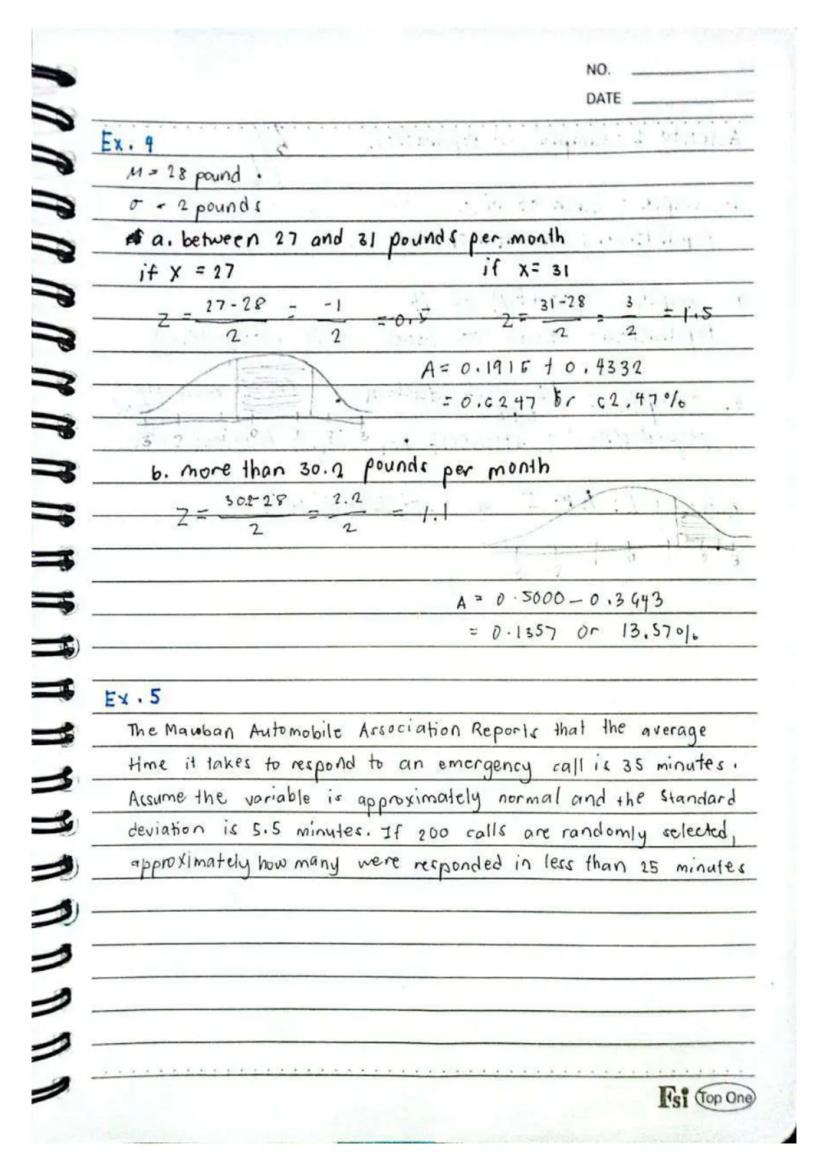 NO.
DATE
Ex. 4
M = 28 pound.
σ = 2 pounds
a. between 27 and 31 pounds per month
if x = 27 if x = 31
Z = 27-28/2 = -1/2 = -0.5 Z = 31-28/2 = 3/2 = 1.5
A = 0.1915 + 0.4332
= 0.6247 or 62.47%
b. more than 30.2 pounds per month
Z = 30.2-28/2 = 2.2/2 = 1.1
A = 0.5000 - 0.3643
= 0.1357 or 13.57%
Ex. 5
The Mauban Automobile Association Reports that the average
time it takes to respond to an emergency call is 35 minutes.
Assume the variable is approximately normal and the standard
deviation is 5.5 minutes. If 200 calls are randomly selected,
approximately how many were responded in less than 25 minutes
Fsi Top One